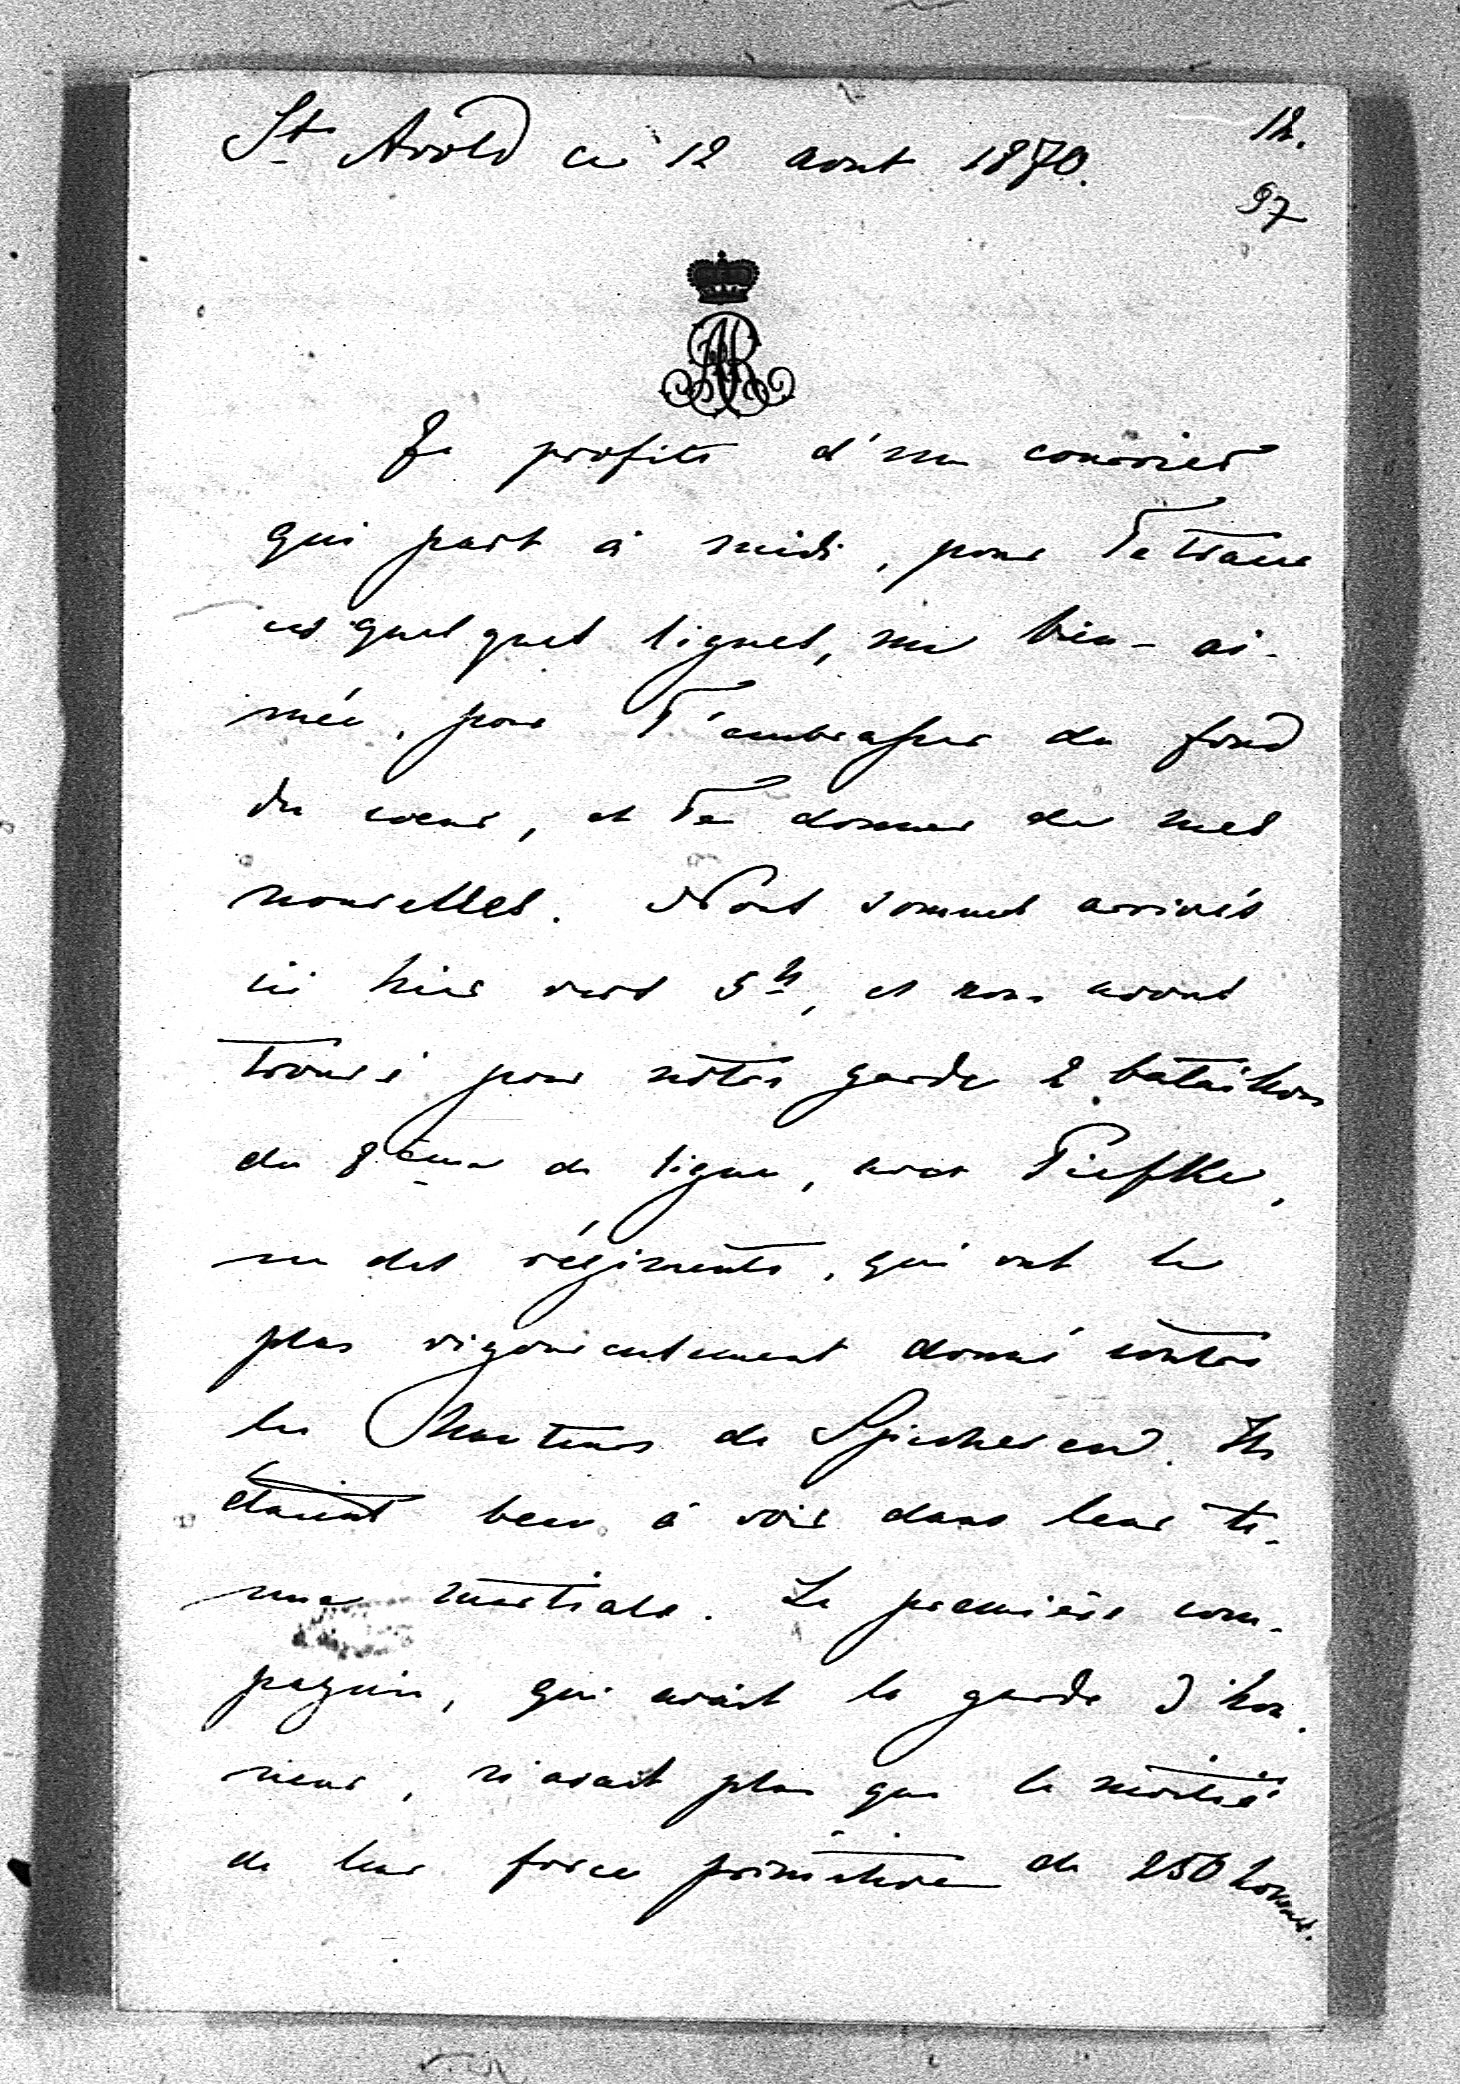 St Avold ce 12 aout 1870.
12.
97
Je profite d'un courrier
qui part à midi, pour Te tracer
ces quelques lignes, ma bien-ai-
mée, pour T'embrasser du fond
du coeur, et Te donner de mes
nouvelles. Nous sommes arrivés
ici hier vers 5h, et nous avons
trouvé pour notre garde 2 bataillons
du 8ème de ligne, avec Piefke,
un des régiments, qui ont le
plus vigoureusement donné contre
les hauteurs de Spicheren. Ils
étaient beau à voir dans leur te-
nue martiale. La première com-
pagnie, qui avait la garde d'hon-
neur, n'avait plus que la moitié
de leur force primitive de 250 hommes.